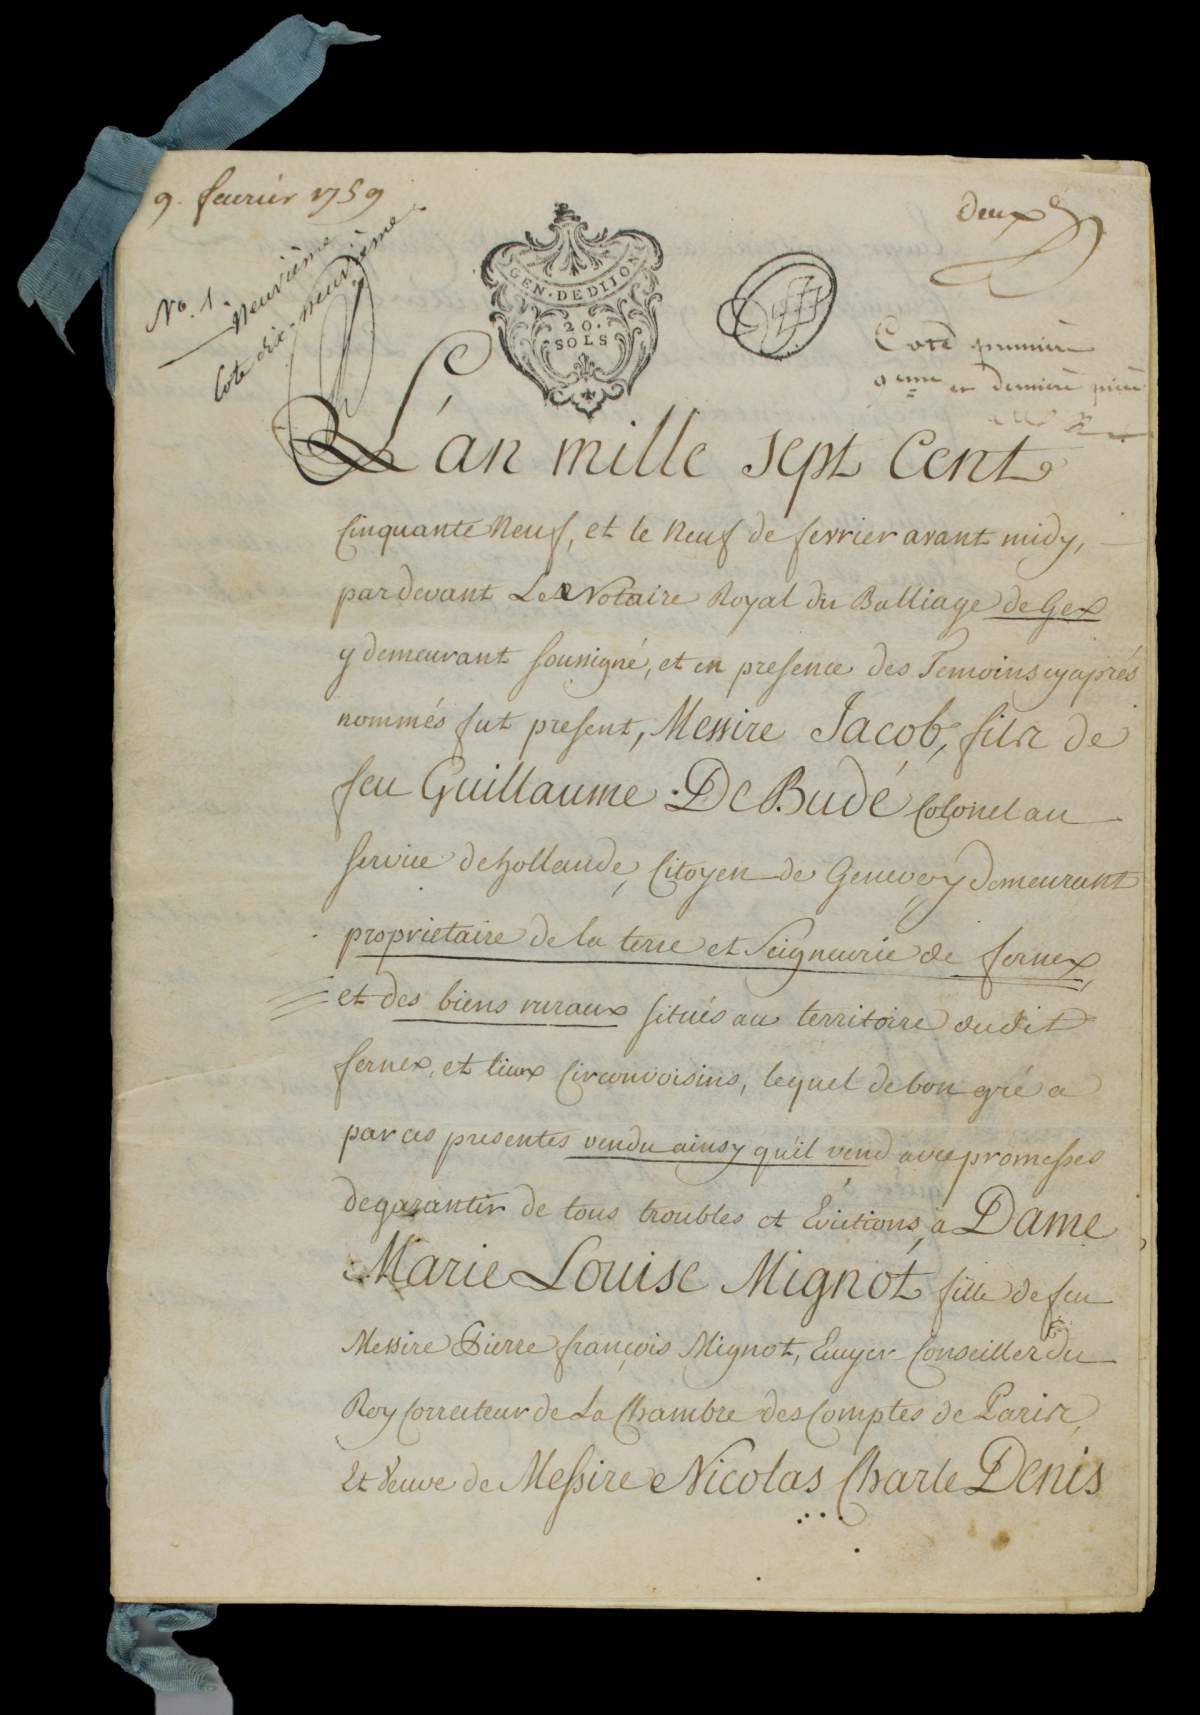 9. feurier 1759
deux
No. 1
Neuvième
Cote dix-neuvième
GEN·DEDIJON
20.
SOLS
Cote premiere
9eme et derniere piece
L'an mille sept Cent
Cinquante Neuf, et le Neuf de fevrier avant midy,
par devant Le Notaire Royal du Balliage de Gex
y demeurant soussigné, et en presence des Temoins cy après
nommés fut present, Messire Jacob, fils de
feu Guillaume De Budé Colonel au
service de hollande, Citoyen de Geneve y demeurant
proprietaire de la terre et Seigneurie de fernex,
et des biens ruraux situés au territoire dudit
fernex, et lieux Circonvoisins, lequel de bon gré a
par ces presentes vendu ainsy qu'il vend avec promesses
de garantir de tous troubles et Evictions, à Dame
Marie Louise Mignot, fille de feu
Messire Pierre françois Mignot, Ecuyer Conseiller du
Roy Correcteur de La Chambre des Comptes de Paris,
Et Veuve de Messire Nicolas Charle Denis